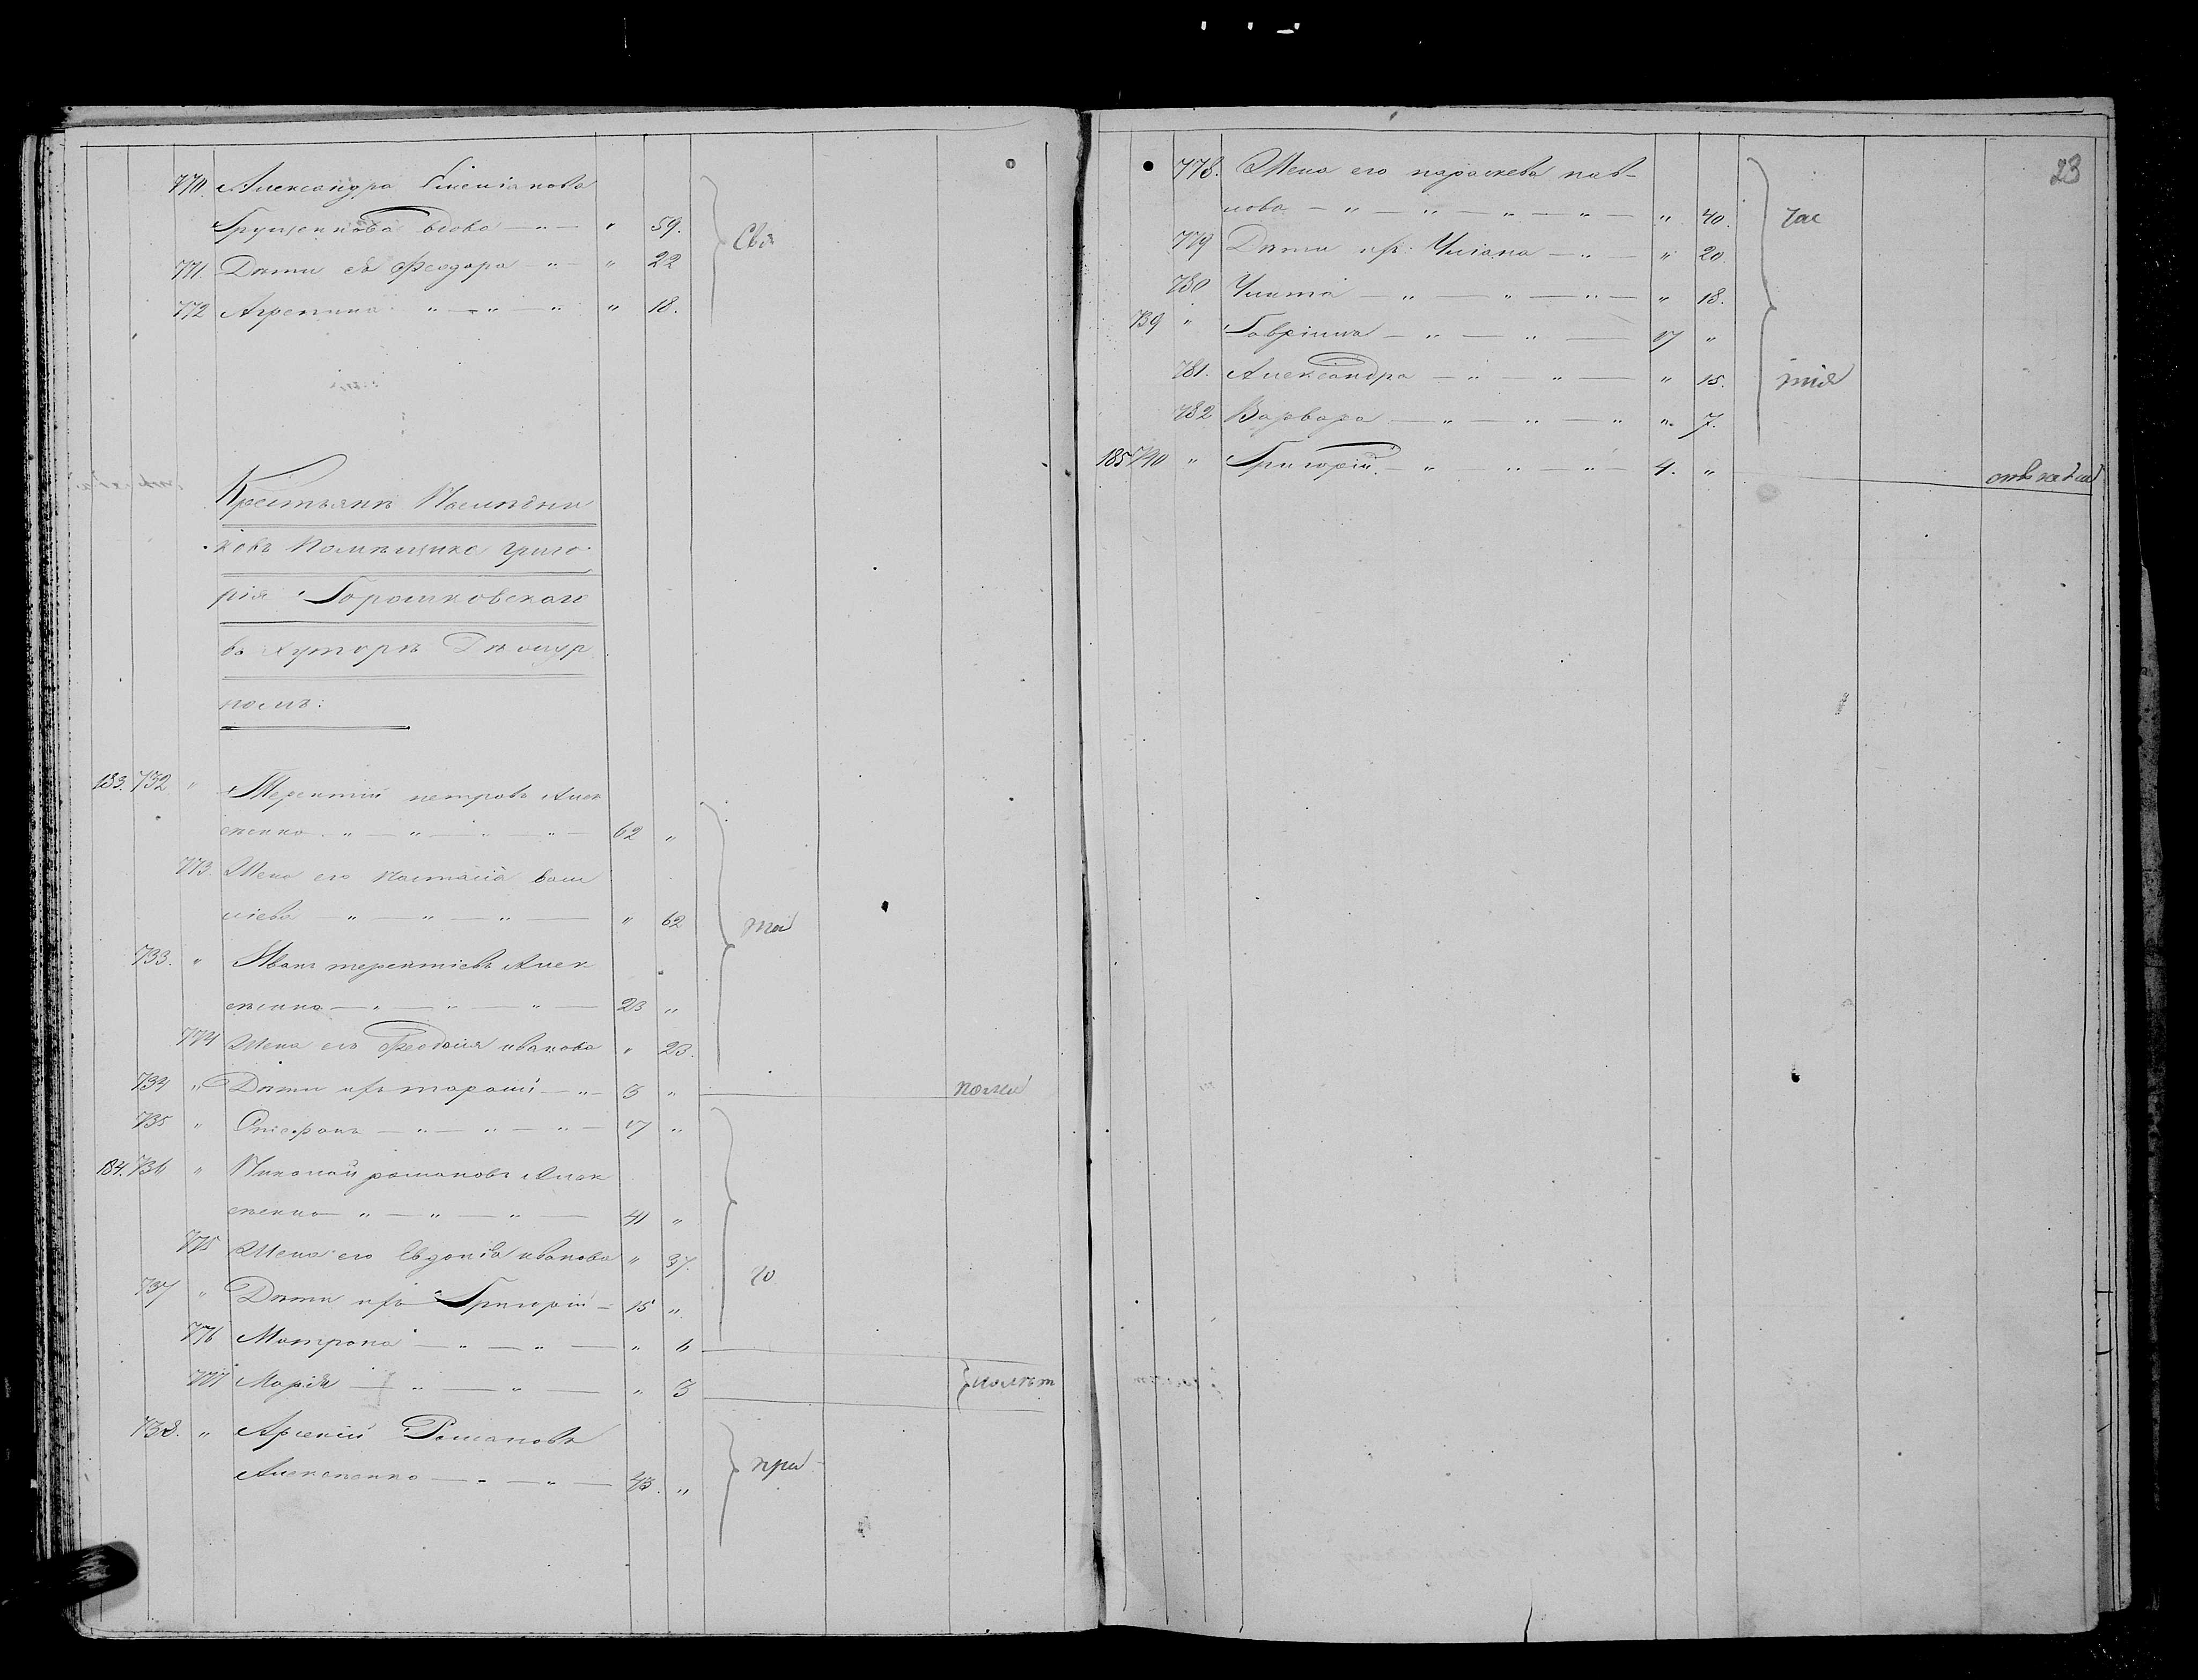 770. Александра Емеліанова
Грущенкова вдова — " — " 59.
771. Дѣти еѣ Феодора — " — " 22
772 Агрепина " — " — " " 18.
Свя
Крестьянѣ Наслѣдни
ковъ Помѣщика Григо-
рія Горошковскаго
въ Хуторѣ
номъ:
183. 732 " Терентій петровъ Алек
сѣенко — " — " — " — " — 62 "
773. Жена его Настасія васи
ліева — " — " — " — " 62
733. " Иванъ терентіевъ Алек
сѣенко — " — " — " — 23 "
774 Жена его Феодосія иванова " 23.
тои
734 " Дѣти ихъ тарасій — " — 3 "
735 " Онісфонъ — " — " — " — 17 "
184. 736 " Николай романовъ Алек
сѣенко — " — " — " — 41 "
775 Жена его Евдокія иванова " 37.
737 " Дѣти ихъ Григорій — 15 "
776 Матрона — " — " — " 6
го
777 Марія — " — " — " 3
738. " Арсеній Романовъ
Алексеенко — " — " — 43. "
при
23
778. Жена его параскева пав-
лова — " — " — " — " — " 40.
779 Дѣти ихъ: Уліана — " — " 20.
780 Улита — " — " — " — " 18.
739 " Гавріила — " — " — 17 "
781. Александра — " — " — " 15.
782 Варвара — " — " — " " 7.
час
тія
185 740 " Григорій — " — " — " — 4. "